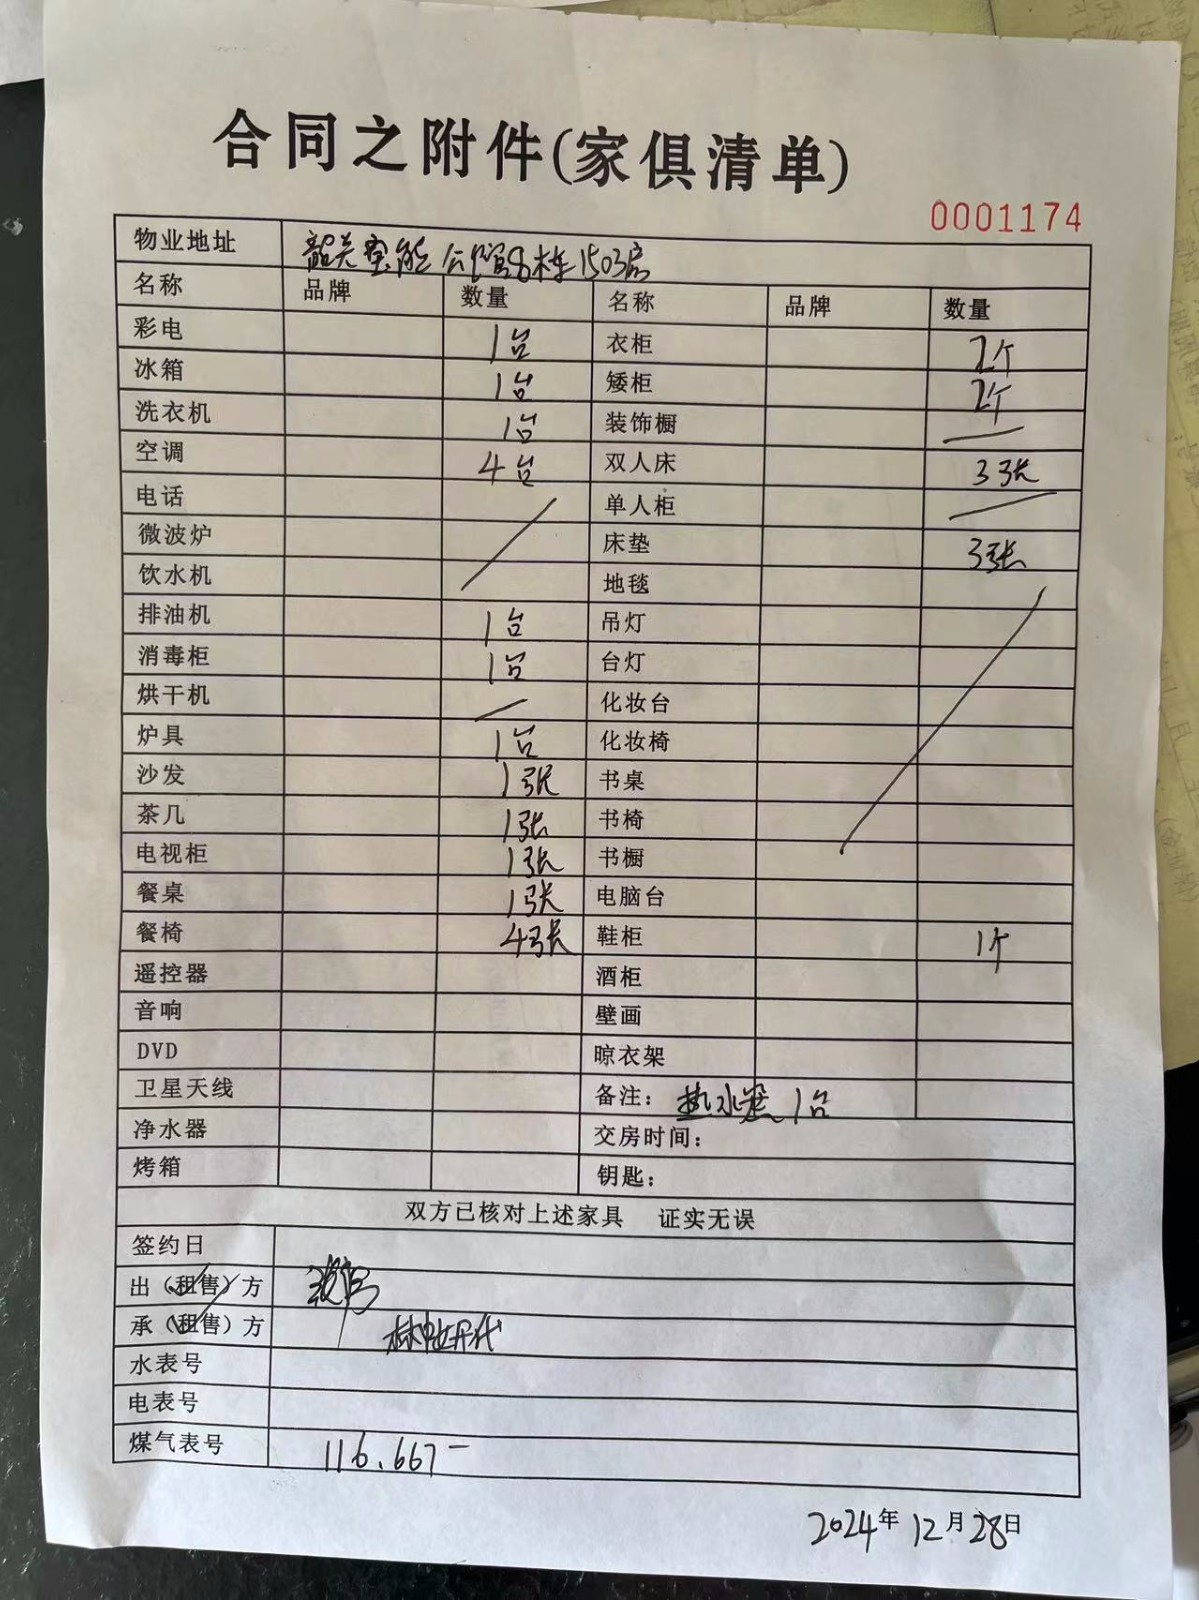 合同之附件(家俱清单)
0001174
物业地址 韶关宝能公馆8栋1503房
名称 品牌 数量 名称 品牌 数量
彩电 1台 衣柜 2个
冰箱 1台 矮柜 2个
洗衣机 1台 装饰橱 —
空调 4台 双人床 3张
电话 单人柜 —
微波炉 床垫 3张
饮水机 地毯
排油机 1台 吊灯
消毒柜 1台 台灯
烘干机 — 化妆台
炉具 1台 化妆椅
沙发 1张 书桌
茶几 1张 书椅
电视柜 1张 书橱
餐桌 1张 电脑台
餐椅 4张 鞋柜 1个
遥控器 酒柜
音响 壁画
DVD 晾衣架
卫星天线 备注: 热水器1台
净水器 交房时间:
烤箱 钥匙:
双方已核对上述家具 证实无误
签约日
出(租售)方
承(租售)方
水表号
电表号
煤气表号 116.667—
2024年12月28日